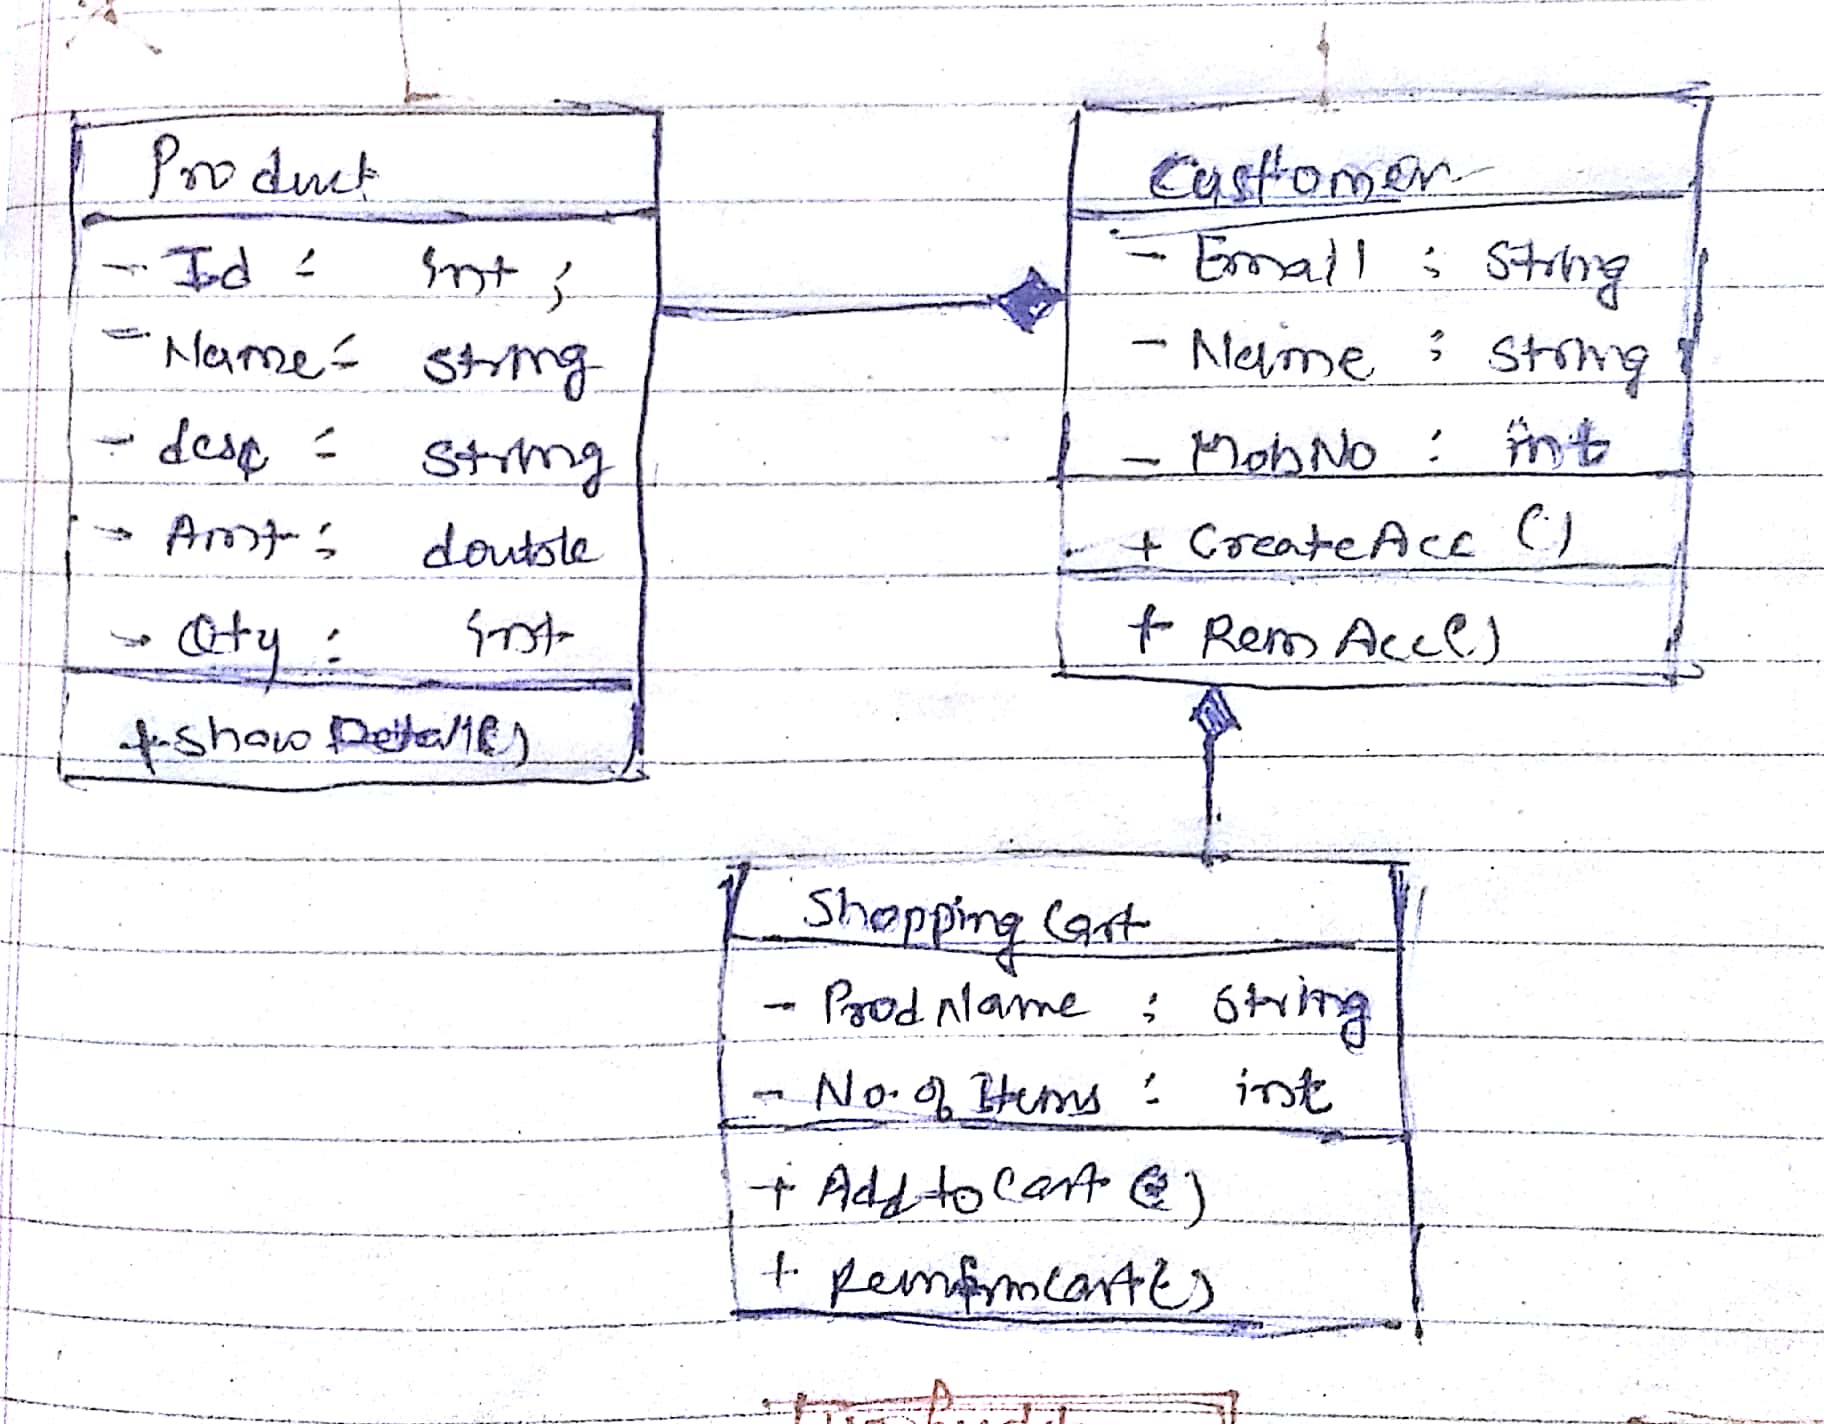 Product
- Id : int ;
- Name : string
- desc : string
- Amt : double
- Qty : int
+ show Detail()
Customer
- Email : string
- Name : string
- MobNo : int
+ CreateAcc ()
+ Rem Acc()
Shopping Cart
- Prod Name : string
- No. of Items : int
+ Add to Cart ()
+ RemfrmCart()